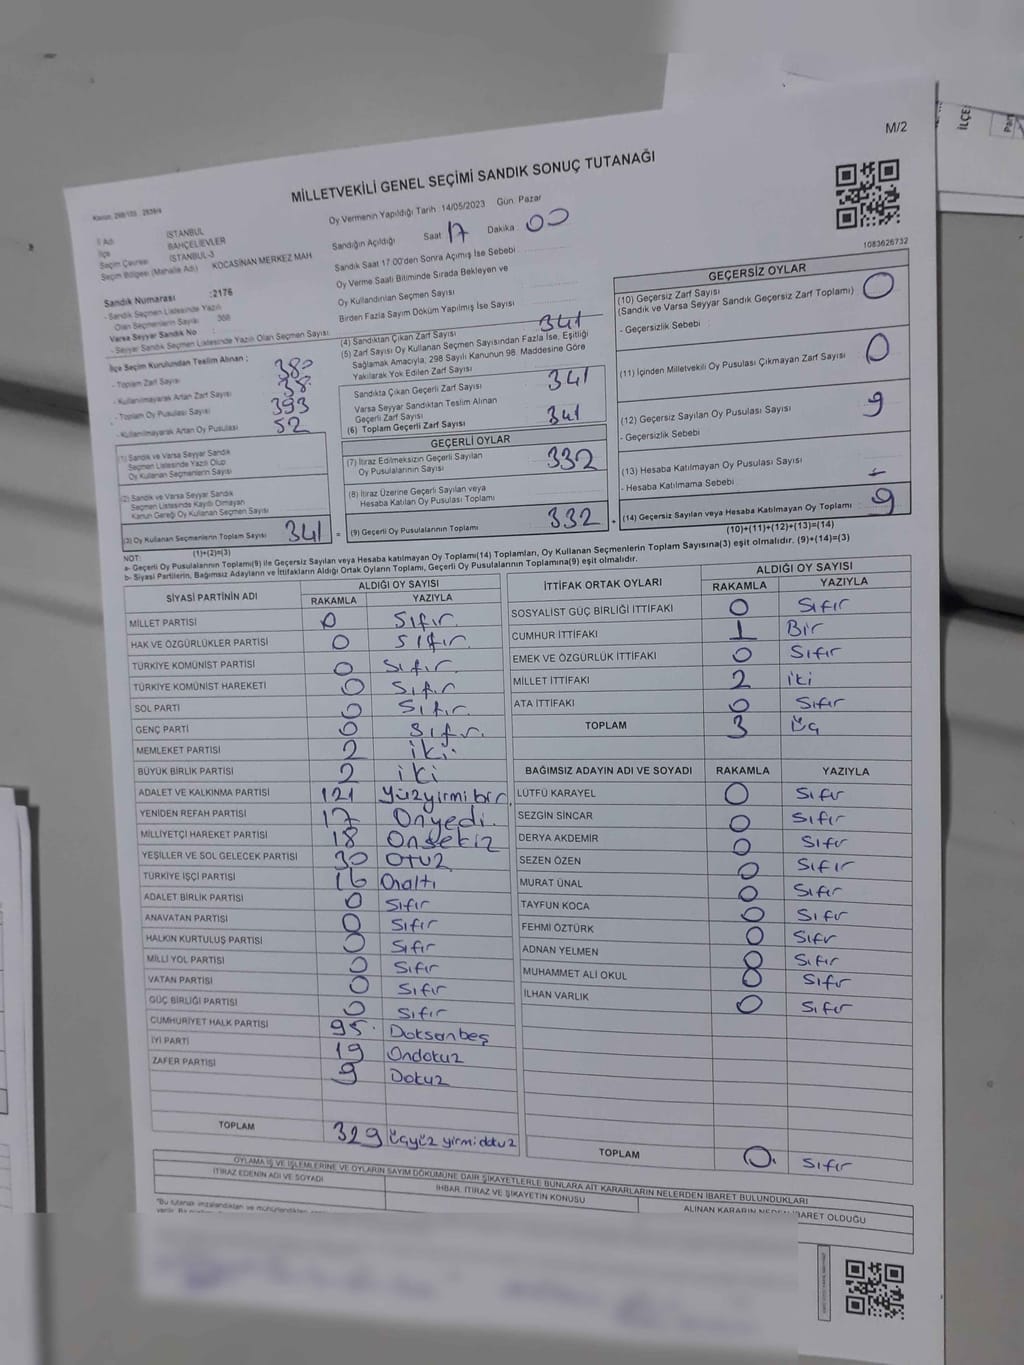 M/2
MİLLETVEKİLİ GENEL SEÇİMİ SANDIK SONUÇ TUTANAĞI
1083626732
Oy Vermenin Yapıldığı Tarih :14/05/2023 Gün. Pazar
İli Adı İSTANBUL
İlçe BAHÇELİEVLER
Seçim Çevresi İSTANBUL-3
Seçim Bölgesi (Mahalle Adı) KOCASİNAN MERKEZ MAH
Sandık Numarası :2176
- Sandık Seçmen Listesinde Yazılı
Olan Seçmenlerin Sayısı 368
Varsa Seyyar Sandık No :
- Seyyar Sandık Seçmen Listesinde Yazılı Olan Seçmen Sayısı
İlçe Seçim Kurulundan Teslim Alınan :
- Toplam Zarf Sayısı 380
- Kullanılmayarak Artan Zarf Sayısı 38
- Toplam Oy Pusulası Sayısı 393
- Kullanılmayarak Artan Oy Pusulası 52
(1) Sandık ve Varsa Seyyar Sandık
Seçmen Listesinde Yazılı Olup
Oy Kullanan Seçmenlerin Sayısı
(2) Sandık ve Varsa Seyyar Sandık
Seçmen Listesinde Kayıtlı Olmayan
Kanun Gereği Oy Kullanan Seçmen Sayısı
(3) Oy Kullanan Seçmenlerin Toplam Sayısı 341 =
(1)+(2)=(3)
Sandığın Açıldığı Saat 17 Dakika 00
Sandık Saat 17:00'den Sonra Açımış İse Sebebi
Oy Verme Saati Bitiminde Sırada Bekleyen ve
Oy Kullandırılan Seçmen Sayısı
Birden Fazla Sayım Döküm Yapılmış İse Sayısı
(4) Sandıktan Çıkan Zarf Sayısı 341
(5) Zarf Sayısı Oy Kullanan Seçmen Sayısından Fazla İse, Eşitliği
Sağlamak Amacıyla, 298 Sayılı Kanunun 98. Maddesine Göre
Yakılarak Yok Edilen Zarf Sayısı
Sandıkta Çıkan Geçerli Zarf Sayısı 341
Varsa Seyyar Sandıktan Teslim Alınan
Geçerli Zarf Sayısı
(6) Toplam Geçerli Zarf Sayısı 341
GEÇERLİ OYLAR
(7) İtiraz Edilmeksizin Geçerli Sayılan
Oy Pusulalarının Sayısı 332
(8) İtiraz Üzerine Geçerli Sayılan veya
Hesaba Katılan Oy Pusulası Toplamı
(9) Geçerli Oy Pusulalarının Toplamı 332 +
GEÇERSİZ OYLAR
(10) Geçersiz Zarf Sayısı
(Sandık ve Varsa Seyyar Sandık Geçersiz Zarf Toplamı) 0
- Geçersizlik Sebebi :
(11) İçinden Milletvekili Oy Pusulası Çıkmayan Zarf Sayısı 0
(12) Geçersiz Sayılan Oy Pusulası Sayısı 9
- Geçersizlik Sebebi
(13) Hesaba Katılmayan Oy Pusulası Sayısı
- Hesaba Katılmama Sebebi :
(14) Geçersiz Sayılan veya Hesaba Katılmayan Oy Toplamı 9
(10)+(11)+(12)+(13)=(14)
NOT:
a- Geçerli Oy Pusulalarının Toplamı(9) ile Geçersiz Sayılan veya Hesaba katılmayan Oy Toplamı(14) Toplamları, Oy Kullanan Seçmenlerin Toplam Sayısına(3) eşit olmalıdır. (9)+(14)=(3)
b- Siyasi Partilerin, Bağımsız Adayların ve İttifakların Aldığı Ortak Oyların Toplamı, Geçerli Oy Pusulalarının Toplamına(9) eşit olmalıdır.
SİYASİ PARTİNİN ADI ALDIĞI OY SAYISI
RAKAMLA YAZIYLA
MİLLET PARTİSİ 0 Sıfır.
HAK VE ÖZGÜRLÜKLER PARTİSİ 0 Sıfır.
TÜRKİYE KOMÜNİST PARTİSİ 0 Sıfır.
TÜRKİYE KOMÜNİST HAREKETİ 0 Sıfır
SOL PARTİ 0 Sıfır.
GENÇ PARTİ 0 Sıfır.
MEMLEKET PARTİSİ 2 iki.
BÜYÜK BİRLİK PARTİSİ 2 iki
ADALET VE KALKINMA PARTİSİ 121 Yüzyirmibir.
YENİDEN REFAH PARTİSİ 17 Onyedi.
MİLLİYETÇİ HAREKET PARTİSİ 18 Onsekiz
YEŞİLLER VE SOL GELECEK PARTİSİ 30 Otuz
TÜRKİYE İŞÇİ PARTİSİ 16 Onaltı
ADALET BİRLİK PARTİSİ 0 Sıfır
ANAVATAN PARTİSİ 0 Sıfır
HALKIN KURTULUŞ PARTİSİ 0 Sıfır
MİLLİ YOL PARTİSİ 0 Sıfır
VATAN PARTİSİ 0 Sıfır
GÜÇ BİRLİĞİ PARTİSİ 0 Sıfır
CUMHURİYET HALK PARTİSİ 95. Doksanbeş
İYİ PARTİ 19 Ondokuz
ZAFER PARTİSİ 9 Dokuz
TOPLAM 329 Üçyüz yirmidokuz
İTTİFAK ORTAK OYLARI ALDIĞI OY SAYISI
RAKAMLA YAZIYLA
SOSYALİST GÜÇ BİRLİĞİ İTTİFAKI 0 Sıfır
CUMHUR İTTİFAKI 1 Bir
EMEK VE ÖZGÜRLÜK İTTİFAKI 0 Sıfır
MİLLET İTTİFAKI 2 iki
ATA İTTİFAKI 0 Sıfır
TOPLAM 3 Üç
BAĞIMSIZ ADAYIN ADI VE SOYADI RAKAMLA YAZIYLA
LÜTFÜ KARAYEL 0 Sıfır
SEZGİN SİNCAR 0 Sıfır
DERYA AKDEMİR 0 Sıfır
SEZEN ÖZEN 0 Sıfır
MURAT ÜNAL 0 Sıfır
TAYFUN KOCA 0 Sıfır
FEHMİ ÖZTÜRK 0 Sıfır
ADNAN YELMEN 0 Sıfır
MUHAMMET ALİ OKUL 0 Sıfır
İLHAN VARLIK 0 Sıfır
TOPLAM 0. Sıfır
OYLAMA İŞ VE İŞLEMLERİNE VE OYLARIN SAYIM DÖKÜMÜNE DAİR ŞİKAYETLERLE BUNLARA AİT KARARLARIN NELERDEN İBARET BULUNDUKLARI
İTİRAZ EDENİN ADI VE SOYADI İHBAR, İTİRAZ VE ŞİKAYETİN KONUSU ALINAN KARARIN NEDEN İBARET OLDUĞU
"Bu tutanak imzalandıktan ve mühürlendikten
İLÇE